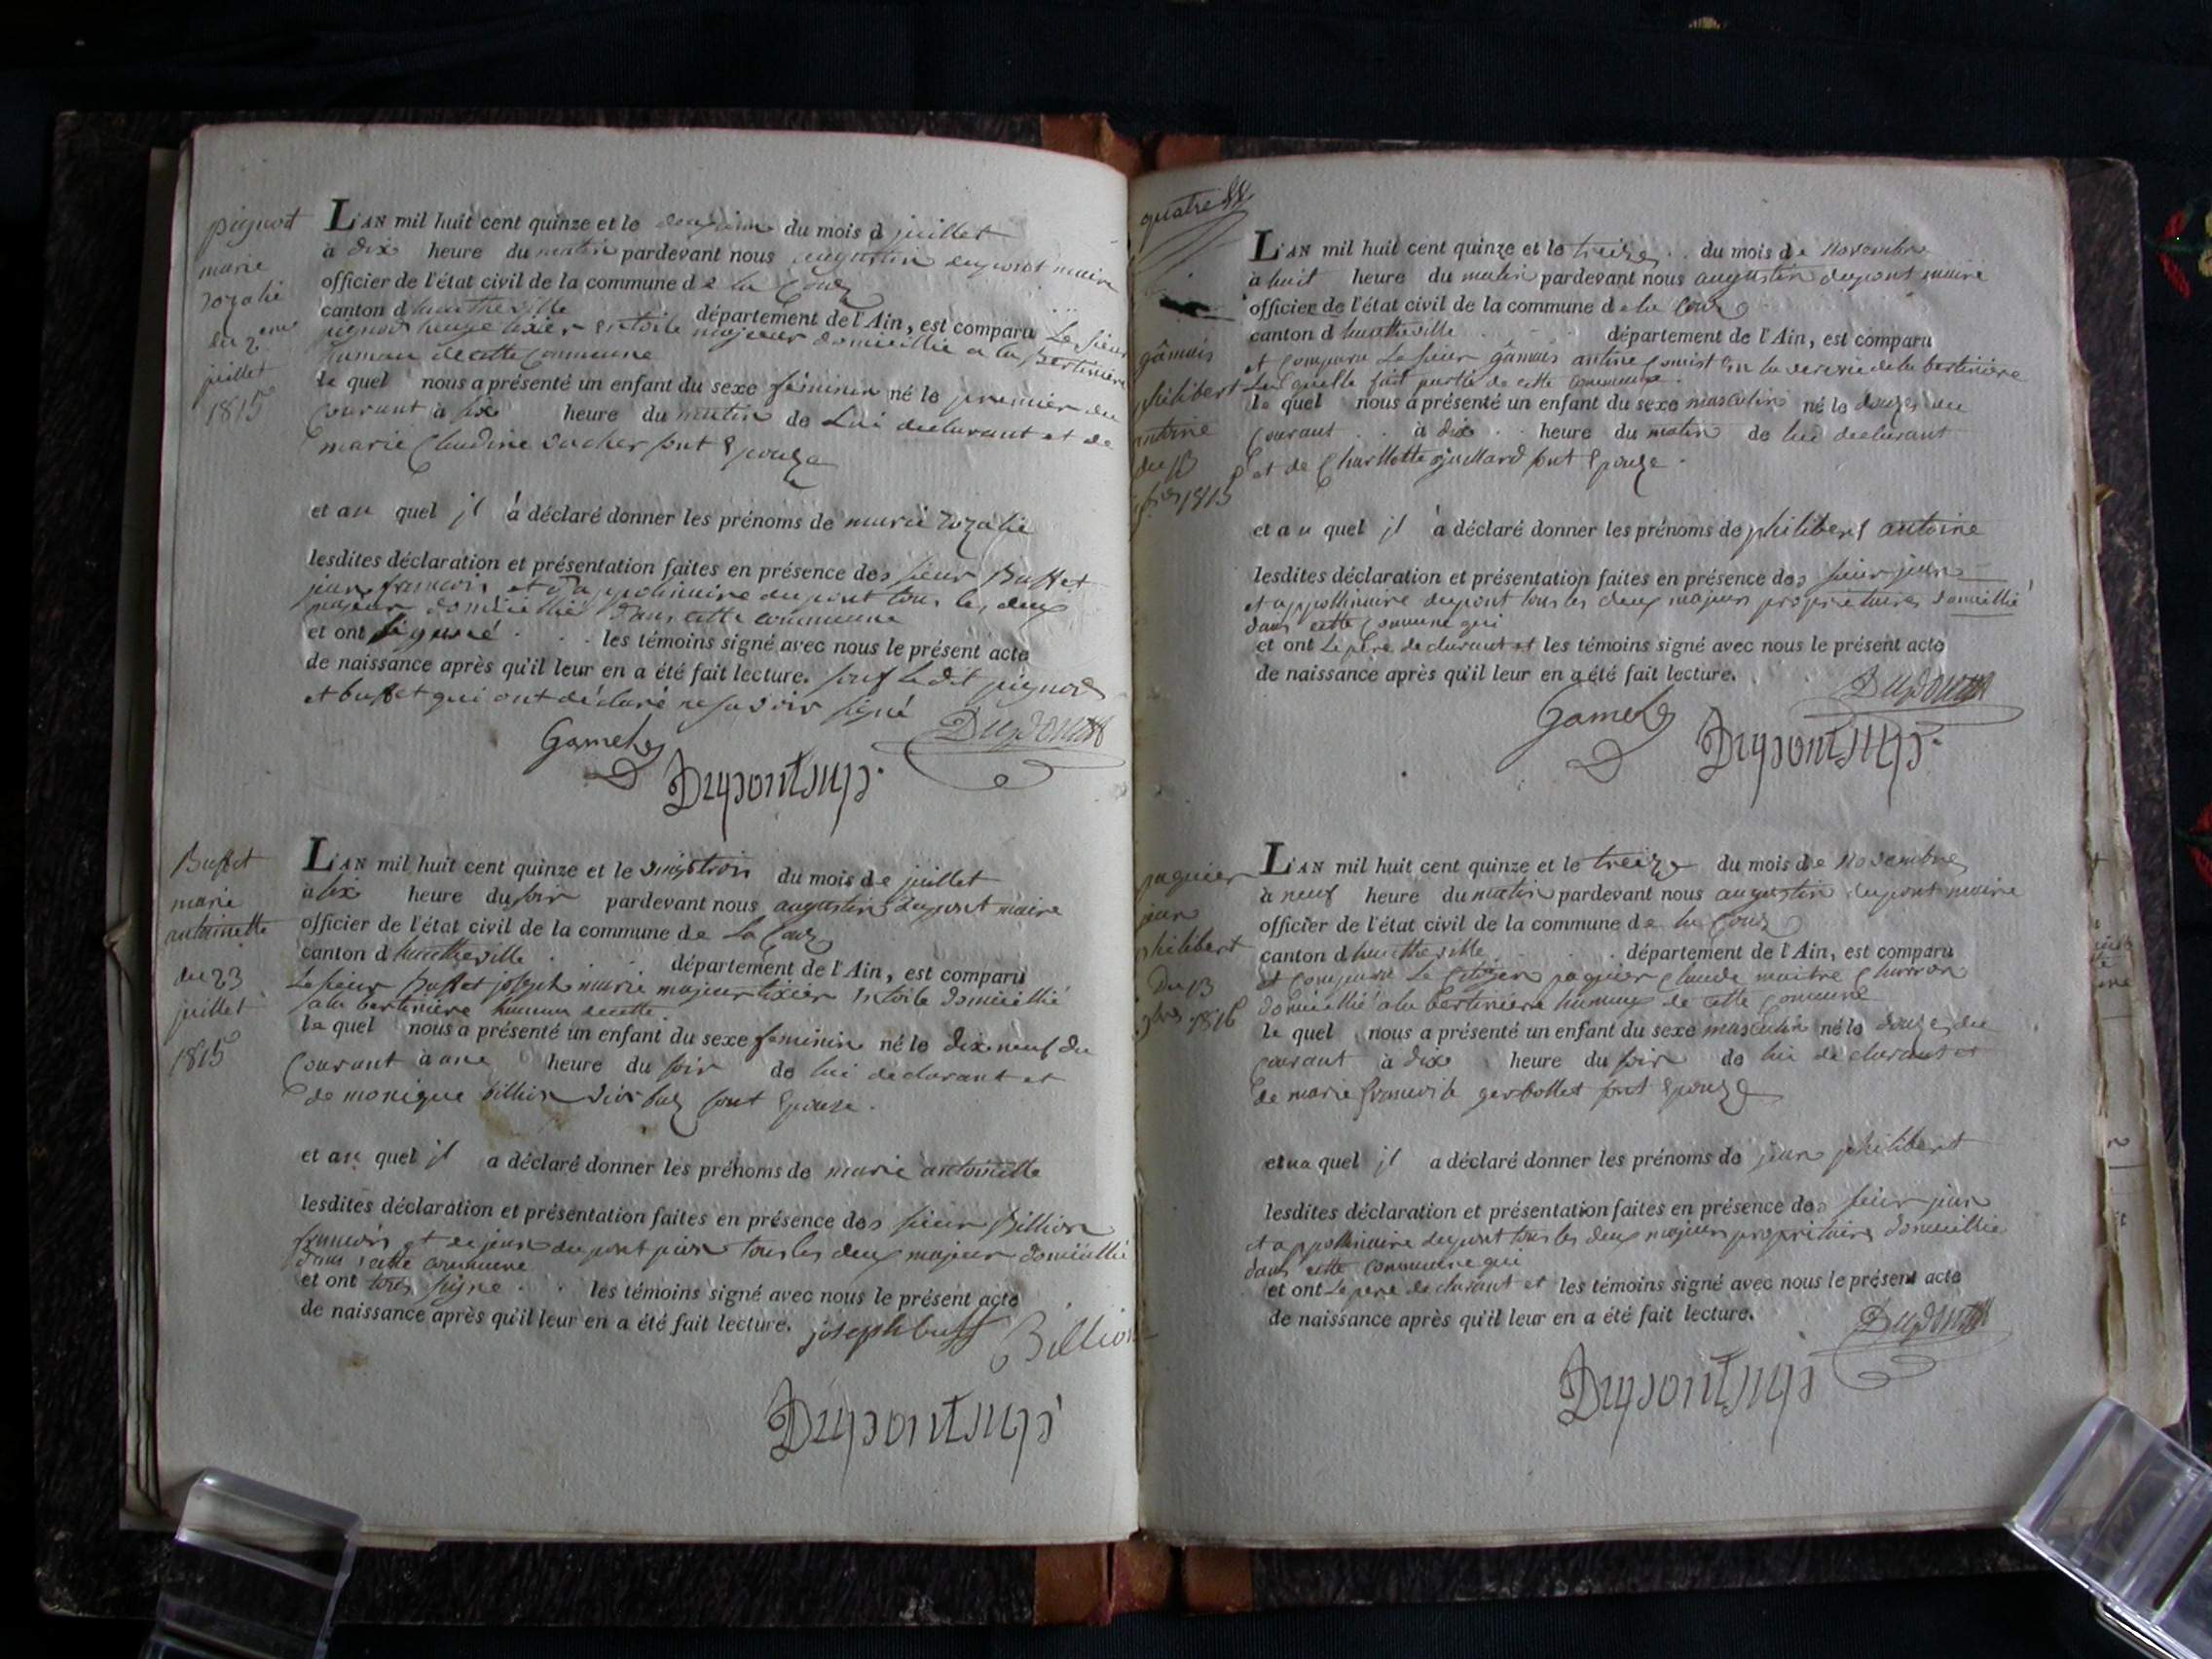 pignot
marie
rozalie
du 2eme
juillet
1815
L'AN mil huit cent quinze et le deuxieme du mois d juillet
à dix heure du matin pardevant nous augustin dupont maire
officier de l'état civil de la commune de la Coux
canton d hauteville département de l'Ain, est comparu Le sieur
pignod tixier en toile majeur domicillié a la bertinière
hamau de cette commune
le quel nous a présenté un enfant du sexe féminin né le premier du
Courant à six heure du matin de Lui declarant et de
marie Claudine sont Epouze
et au quel jl à déclaré donner les prénoms de marie rozalie
lesdites déclaration et présentation faites en présence des sieur Buffet
jean francois et appolinaire dupont tous les deux
majeur domicillié dans cette commune
et ont les témoins signé avec nous le présent acte
de naissance après qu'il leur en a été fait lecture. sauf le dit pignod
et buffet qui ont déclaré ne savoir signé
Dupont
Buffet
marie
antoinette
du 23
juillet
1815
L'AN mil huit cent quinze et le vingtrois du mois de juillet
à six heure du soir pardevant nous augustin dupont maire
officier de l'état civil de la commune de La Coux
canton d hauteville département de l'Ain, est comparu
Le sieur Buffet joseph marie majeur tixier en toile domicillié
a la bertinière hamau de cette
le quel nous a présenté un enfant du sexe feminin né le dix neuf du
Courant à une heure du soir de lui declarant et
de monique billion sont Epouze.
et au quel jl a déclaré donner les prénoms de marie antoinette
lesdites déclaration et présentation faites en présence des sieur Billion
francois et de jean dupont tous les deux majeur domicillié
dans cette commune
et ont tous signe les témoins signé avec nous le présent acte
de naissance après qu'il leur en a été fait lecture.
joseph buff Billion
quatre
gâmais
philibert
antoine
du 13
1815
L'AN mil huit cent quinze et le treize du mois de Novembre
à huit heure du matin pardevant nous augustin dupont maire
officier de l'état civil de la commune de la Coux
canton d hauteville département de l'Ain, est comparu
et comparu Le sieur gâmais antine de la bertinière
Laquelle fait partie de cette commune
le quel nous a présenté un enfant du sexe masculin né le douze du
Courant à dix heure du matin de lui declarant
et de Charllotte sont Epouze.
et au quel jl à déclaré donner les prénoms de philibert antoine
lesdites déclaration et présentation faites en présence des sieur jean
et appollinaire dupont tous les deux majeurs proprietaires domicillié
dans cette commune qui
et ont Le pere declarant et les témoins signé avec nous le présent acte
de naissance après qu'il leur en a été fait lecture.
Dupont
jaquier
jean
philibert
Du 13
L'AN mil huit cent quinze et le treize du mois de Novembre
à neuf heure du matin pardevant nous augustin dupont maire
officier de l'état civil de la commune de la Coux
canton d hauteville département de l'Ain, est comparu
et comparu Le Citoyen jaquier Claude maitre Charron
domicillié a la bertiniere hamau de cette Commune
le quel nous a présenté un enfant du sexe masculin né le douze du
courant à dix heure du soir de lui declarant et
de marie francoise gerbollet sont Epouze
et au quel jl a déclaré donner les prénoms de jean philibert
lesdites déclaration et présentation faites en présence des sieur jean
et appollinaire dupont tous les deux majeurs propritaires domicillié
dans cette commune qui
et ont Le pere declarant et les témoins signé avec nous le présent acte
de naissance après qu'il leur en a été fait lecture.
Dupont